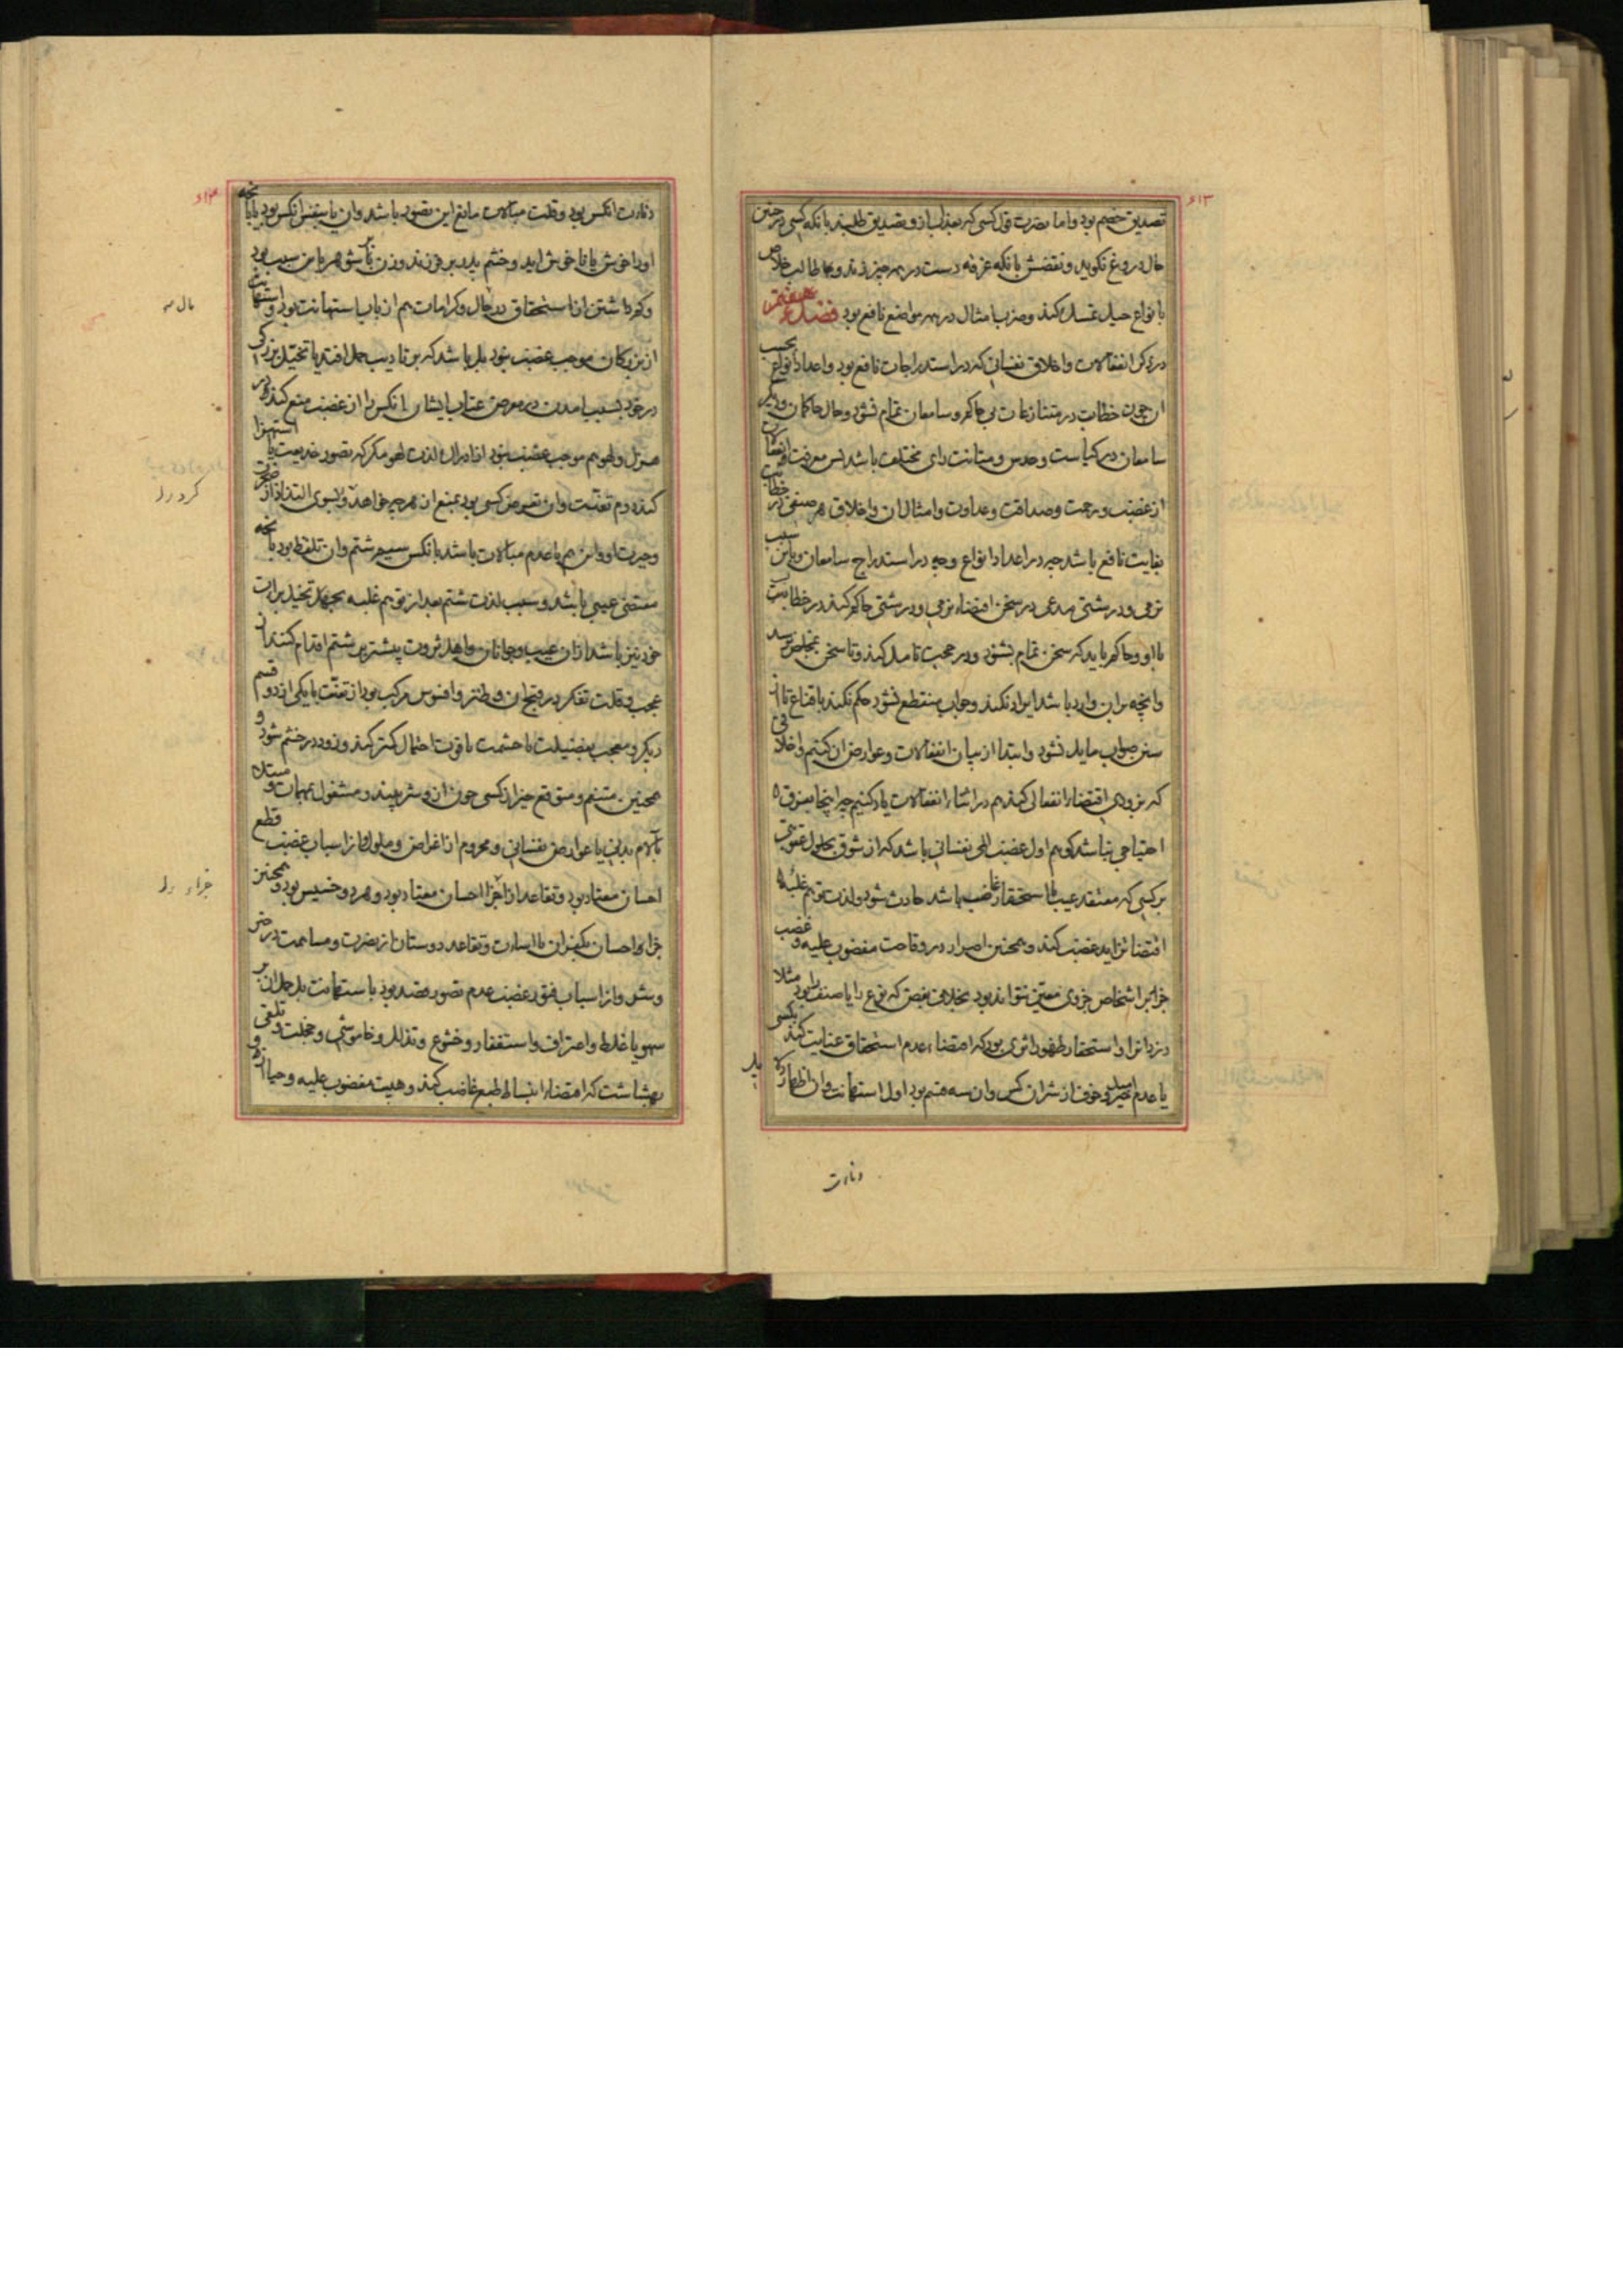 تصدیق خصم بود و اما نصرت قول کسی که بعذاب ازو تصدیق طلبند بانکه کسی در چنین
حال دروغ نکوید و نقضش بانکه غرقه دست در همه چیز زند و بهر طالب خلاص
بانواع حیل تمسک کند و ضرب امثال در همه مواضع نافع بود فصل هفتم
در ذکر انفعالات و اخلاق نفسانی که در استدراجات نافع بود و اعداد انواع بحسب
ان چون خطابت در منازعات بی حاکم و سامعان تمام نشود و حال حاکمان و دیگر
سامعان در کیاست و حدس و متانت رای مختلف باشد پس معرفت انفعالات
از غضب و رحمت و صداقت و عداوت و امثال ان و اخلاق هر صنفی در خطابت
بغایت نافع باشد چه در اعداد انواع و چه در استدراج سامعان و باین سبب
نرمی و درشتی مدعی در سخن اقتضاء نرمی و درشتی حاکم کند در خطابت
با او و حاکم باید که سخن تمام بشنود و در حجت تامل کند و تا سخن بمخلص نرسد
وانچه بران وارد باشد ایراد نکند و جواب منقطع نشود حکم نکند باقناع تا از
سنن صواب مایل نشود و ابتدا از بیان انفعالات و عوارض ان کنیم و اخلاقی
که بزودی اقتضاء انفعالی کند هم در اثناء انفعالات یاد کنیم چه اینجا بفرق
احتیاجی نباشد کوییم اول غضب المی نفسانی باشد که از شوق بحلول عقوبتی
بر کسی که معتقد عیب یا استحقار غاضب باشد حادث شود و لذت توهم غلبه
اقتضا تزاید غضب کند و همچنین اصرار در وقاحت مغضوب علیه و غضب
جز بر اشخاص جزوی معین نتواند بود بخلاف بغض که نوع را یا صنف را بود مثلا
دزدانرا و استحقار ظهور اثری بود که اقتضاء عدم استحقاق عنایت کند بکسی
یا عدم امید خیر و خوف از شر ان کس و ان سه قسم بود اول استهانت و ان اظهار
دناءت
دناءت انکس بود و قلت مبالات مانع این تصور باشد و ان یا بنفس انکس بود یا بانچه
اورا خوش یا ناخوش اید و خشم پدر بر فرزند و زن بر شوهر باین سبب بود
و کم داشتن از استحقاق در مال و کرامات هم از باب استهانت بود و استهانت
از بزرکان موجب غضب نبود بل باشد که بر تادیب حمل افتد یا تخیل بزرکی
در خود بسبب امدن در معرض عتاب ایشان انکس را از غضب منع کند و در
هزل و لهو هم موجب غضب نبود افادۀ لذت لهو مکر که تصور خدیعت یا استهزا
کند دوم تعنّت و ان تعرض کسی بود بمنع از هر چه خواهد و لا بسوی التذاذ از ضجرت
و حیرت او و این هم با عدم مبالات باشد بانکس سیوم شتم و ان تلفظ بود بانچه
مقتضی عیبی باشد و سبب لذت شتم بعد از توهم غلبه بجهل تخیل براءت
خود نیز باشد ازان عیب و جوانان و اهل ثروت بیشتر بر شتم اقدام کنند از
عجب و قلت تفکر در قبح ان و طنز و افسوس مرکب بود از تعنّت با یکی از دو قسم
دیکر و معجب بفضیلت یا حشمت یا قوت احتمال کمتر کند و زود در خشم شود و
همچنین متنعم و متوقع خیر از کسی چون ازو شر بیند و مشغول بمهمات و مبتلا
بآلام بدنی یا عوارض نفسانی و محروم از اغراض و ملول و از اسباب غضب قطع
احسان معتاد بود و تقاعد از جزا احسان معتاد بود و هر دو خسیس بود و همچنین
جزاء احسان بکفران یا اساءت و تقاعد دوستان از نصرت و مساهمت در خیر
و شر و از اسباب فتور غضب عدم تصور قصد بود باستهانت بل حمل ان بر
سهو یا غلط و اعتراف و استغفار و خشوع و تذلل و خاموشی و خجلت و تلقی
بهشاشت که اقتضاء انبساط طبع غاضب کند و هیبت مغضوب علیه و حیا ازو و